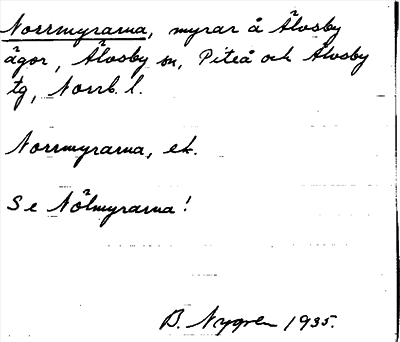 Norrmyrarna, myrar å Älvsby
ägor, Älvsby sn, Piteå och Älvsby
tg, Norrb. l.
Norrmyrarna, ek.
Se Nölmyrarna!
B. Nygren 1935.